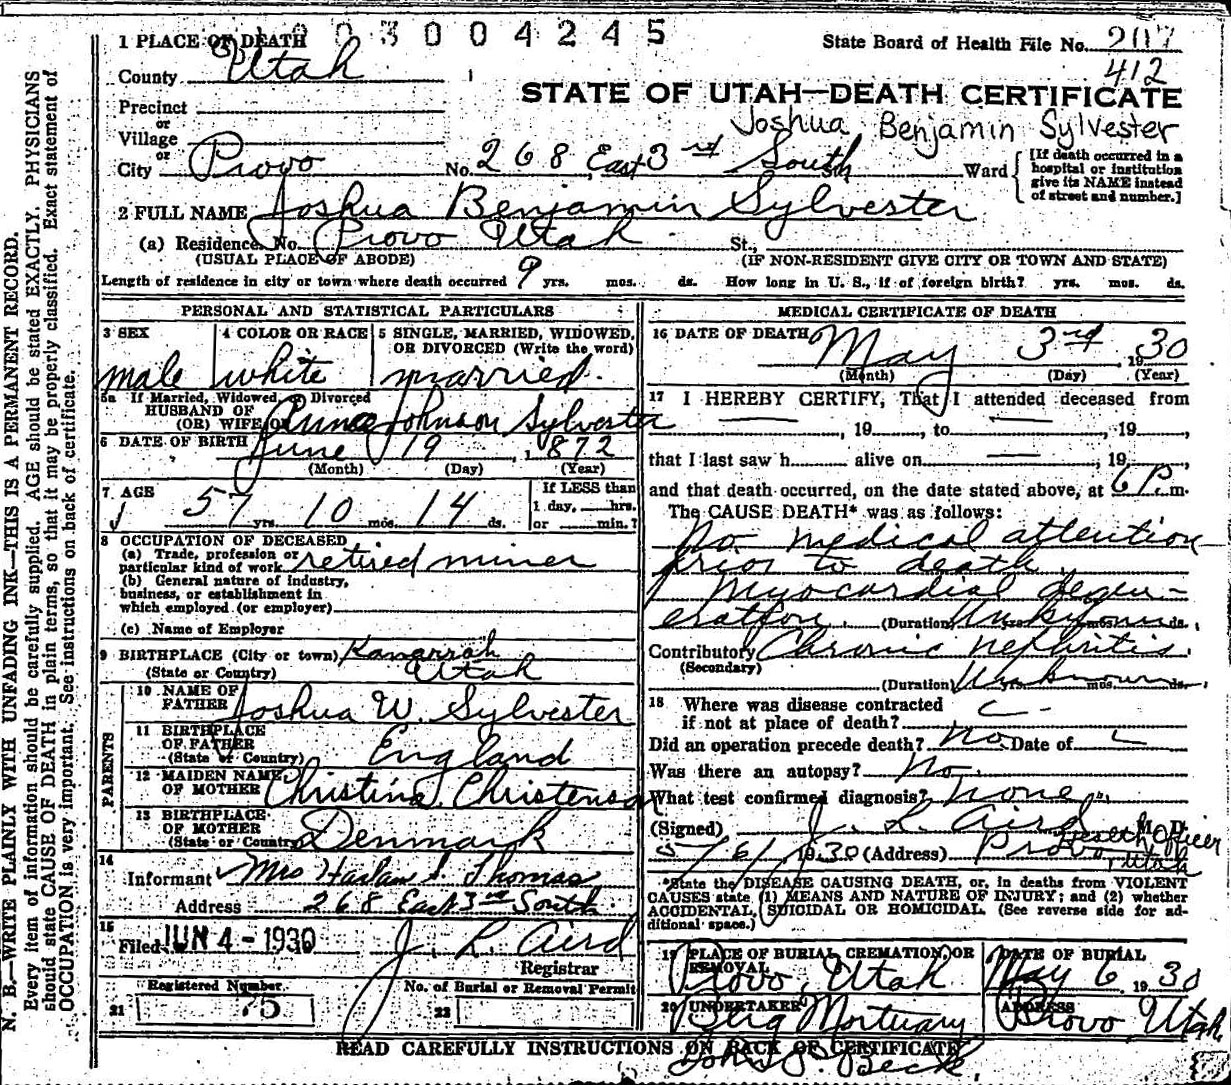 003004245
1 PLACE OF DEATH
State Board of Health File No. 207
412
County Utah
STATE OF UTAH—DEATH CERTIFICATE
Precinct
or
Village
Joshua Benjamin Sylvester
or
City Provo No. 268 East 3rd South Ward
[If death occurred in a hospital or institution give its NAME instead of street and number.]
2 FULL NAME Joshua Benjamin Sylvester
(a) Residence. No. Provo Utah St.,
(USUAL PLACE OF ABODE) (IF NON-RESIDENT GIVE CITY OR TOWN AND STATE)
Length of residence in city or town where death occurred 9 yrs. mos. ds. How long in U. S., if of foreign birth? yrs. mos. ds.
PERSONAL AND STATISTICAL PARTICULARS
3 SEX
male
4 COLOR OR RACE
white
5 SINGLE, MARRIED, WIDOWED,
OR DIVORCED (Write the word)
married.
5a If Married, Widowed, or Divorced
HUSBAND OF
(OR) WIFE OF Johnson Sylvester
6 DATE OF BIRTH June 19, 1872
(Month) (Day) (Year)
7 AGE
57 yrs. 10 mos. 14 ds.
If LESS than
1 day, hrs.
or min.?
8 OCCUPATION OF DECEASED
(a) Trade, profession or
particular kind of work retired miner
(b) General nature of industry,
business, or establishment in
which employed (or employer)
(c) Name of Employer
9 BIRTHPLACE (City or town) Kanarrah
(State or Country) Utah
PARENTS
10 NAME OF
FATHER Joshua W. Sylvester
11 BIRTHPLACE
OF FATHER
(State or Country) England
12 MAIDEN NAME
OF MOTHER Christina Christenson
13 BIRTHPLACE
OF MOTHER
(State or Country) Denmark
14
Informant Mrs Harlan S. Thomas
Address 268 East 3rd South
15
Filed JUN 4 - 1930 J. L. Aird
Registrar
Registered Number
21 75
No. of Burial or Removal Permit
22
MEDICAL CERTIFICATE OF DEATH
16 DATE OF DEATH May 3rd 1930
(Month) (Day) (Year)
17 I HEREBY CERTIFY, That I attended deceased from
— , 19 , to — , 19 ,
that I last saw h alive on — , 19 ,
and that death occurred, on the date stated above, at 6 P. m.
The CAUSE DEATH* was as follows:
No medical attention
prior to death
Myocardial degen-
eration. (Duration) Unknown yrs. mos. ds.
Contributory Chronic nephritis.
(Secondary)
(Duration) Unknown yrs. mos. ds.
18 Where was disease contracted
if not at place of death?
Did an operation precede death? No. Date of
Was there an autopsy? No.
What test confirmed diagnosis? None.
(Signed) J. L. Aird M. D.
Health Officer
5/6/ 1930 (Address) Provo, Utah
*State the DISEASE CAUSING DEATH, or, in deaths from VIOLENT
CAUSES state (1) MEANS AND NATURE OF INJURY; and (2) whether
ACCIDENTAL, SUICIDAL OR HOMICIDAL. (See reverse side for ad-
ditional space.)
19 PLACE OF BURIAL CREMATION, OR
REMOVAL
Provo, Utah
DATE OF BURIAL
May 6 1930
20 UNDERTAKER
Berg Mortuary
ADDRESS
Provo Utah.
READ CAREFULLY INSTRUCTIONS ON BACK OF CERTIFICATE
Beck
N. B.—WRITE PLAINLY WITH UNFADING INK—THIS IS A PERMANENT RECORD.
Every item of information should be carefully supplied. AGE should be stated EXACTLY. PHYSICIANS
should state CAUSE OF DEATH in plain terms, so that it may be properly classified. Exact statement of
OCCUPATION is very important. See instructions on back of certificate.